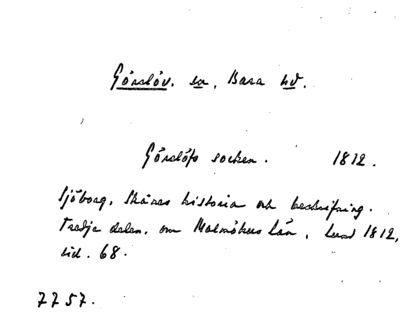 Görslöv. sn, Bara hd.
Görslöfs socken. 1812.
Sjöborg, Skånes historia och beskrifning.
Tredje delen, om Malmöhus Län, Lund 1812,
sid. 68.
7757.